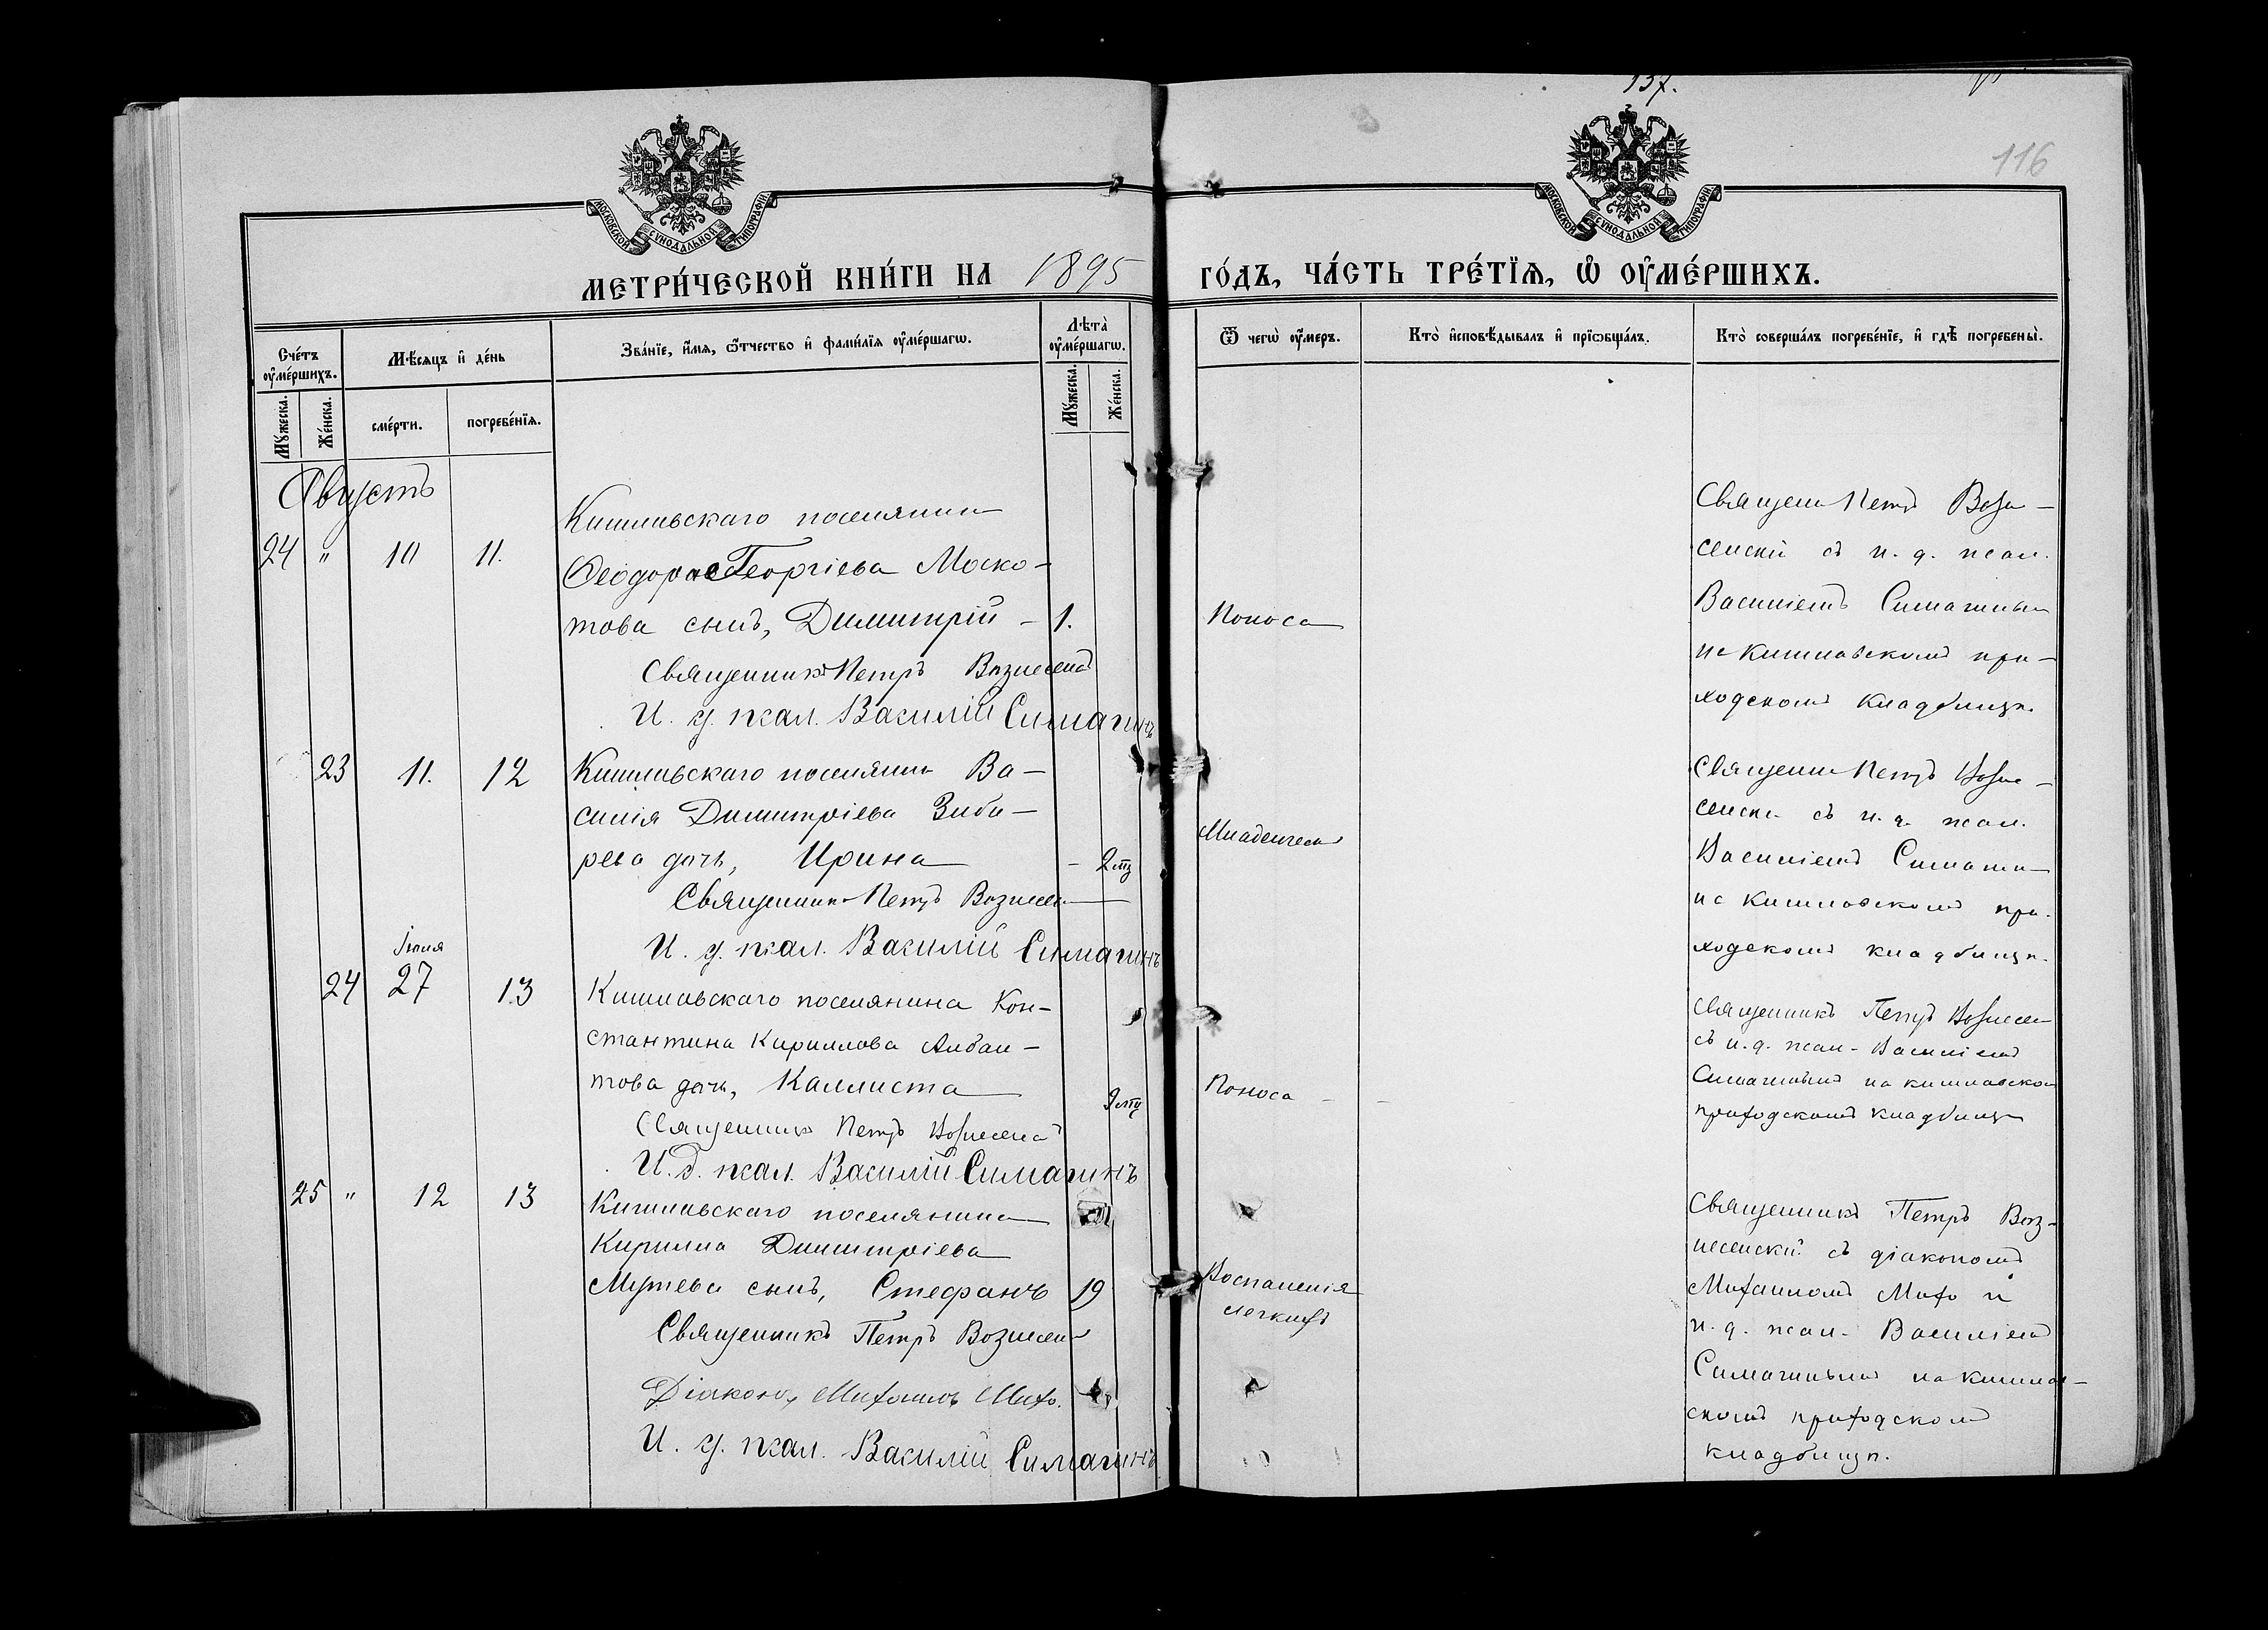 137.
116
МОСКОВСКОЙ СУНОДАЛЬНОЙ ТИПОГРАФІИ
МОСКОВСКОЙ СУНОДАЛЬНОЙ ТИПОГРАФІИ
МЕТРИ́ЧЕСКОЙ КНИ́ГИ НА 1895 ГО́ДЪ, ЧА́СТЬ ТРЕ́ТЇѦ, Ѡ҆ ОУ҆МЕ́РШИХЪ.
Сче́тъ оу҆ме́ршихъ.
Мѣ́сѧцъ и҆ де́нь
Зва́нїе, и҆́мѧ, ѻ҆́тчество и҆ фами́лїѧ оу҆ме́ршагѡ.
Лѣта̀ оу҆ме́ршагѡ.
Ѿ чегѡ̀ оу҆́меръ.
Кто̀ и҆сповѣ́дывалъ и҆ прїѡбща́лъ.
Кто̀ соверша́лъ погребе́нїе, и҆ гдѣ̀ погребены̀.
Мꙋ́жеска.
Же́нска.
сме́рти.
погребе́нїѧ.
Мꙋ́жеска.
Же́нска.
Августъ
24 " 10 11.
Кишлавскаго поселянина
Ѳеодора Георгіева Моско-
това сынъ, Димитрій - 1.
Священникъ Петръ Вознесенс
И. д. псал. Василій Симагинъ
Поноса
Священ Петръ Возне-
сенскій съ и. д. псал.
Василіемъ Симагинымъ
на Кишлавскомъ при-
ходскомъ кладбищѣ.
23 11. 12
Кишлавскаго поселянина Ва-
силія Димитріева
дочь, Ирина - 2
Священникъ Петръ Вознесен
И. д. псал. Василій Симагинъ
Младенческ
Священ Петръ Возне-
сенск съ и. д. псал.
Василіемъ Симаги
на Кишлавскомъ при-
ходскомъ кладбищѣ.
24 Іюля 27 13
Кишлавскаго поселянина Кон-
стантина Кириллова Албан-
това дочь, Каллиста
Священникъ Петръ Вознесенс
И. д. псал. Василій Симагинъ
Поноса - -
Священникъ Петръ Вознесен
съ и. д. псал. Василіемъ
Симагинымъ на кишлавском
приходскомъ кладбищѣ
25 " 12 13
Кишлавскаго поселянина
Кирилла Димитріева
сынъ, Стефанъ 19
Священникъ Петръ Вознесен
Діаконъ Михаилъ Михо.
И. д. псал. Василій Симагинъ
Воспаленія
легкихъ
Священникъ Петръ Воз-
несенскій съ діакономъ
Михаиломъ Михо и
и. д. псал. Василіемъ
Симагинымъ на кишлав-
скомъ приходскомъ
кладбищѣ.